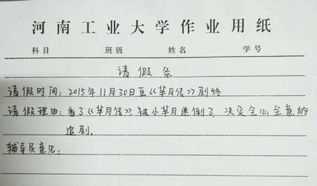 河南工业大学作业用纸
科目 班级 姓名 学号
请假条
请假时间：2015年11月30日至《芈月传》剧终
请假理由：看了《芈月传》被小芈月圈倒了，决定全心全意的
追剧.
辅导员意见：